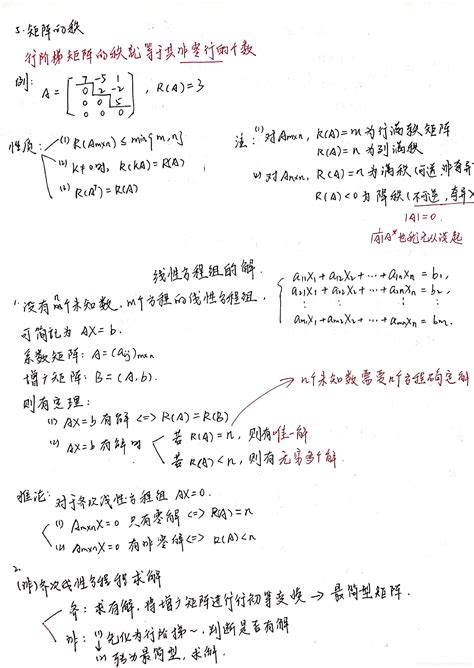 5. 矩阵的秩
行阶梯矩阵的秩就等于其非零行的个数
例: A = [7 -5 1
0 2 -2
0 0 5
0 0 0], R(A)=3
性质: (1) R(Am×n) ≤ min{m,n}
(2) k≠0时, R(kA)=R(A)
(3) R(Aᵀ)=R(A)
注: (1) 对Am×n, R(A)=m 为行满秩矩阵
R(A)=n 为列满秩
(2) 对An×n, R(A)=n 为满秩 (可逆,非奇异
R(A)<0 为降秩 (不可逆,奇异)
|A|=0.
1/|A| A* 也就无从谈起
线性方程组的解.
1. 设有n个未知数, m个方程的线性方程组,
a11x1 + a12x2 + ··· + a1nxn = b1,
a21x1 + a22x2 + ··· + a2nxn = b2,
⋮
am1x1 + am2x2 + ··· + amnxn = bm.
可简记为 AX=b.
系数矩阵: A=(aij)m×n
增广矩阵: B=(A,b).
则有定理:
n个未知数需要n个方程确定解
(1) AX=b 有解 <=> R(A)=R(B)
(2) AX=b 有解时 若 R(A)=n, 则有唯一解
若 R(A)<n, 则有无穷多个解.
推论: 对于齐次线性方程组 AX=0.
(1) Am×nX=0 只有零解 <=> R(A)=n
(2) Am×nX=0 有非零解 <=> R(A)<n
2.
(非)齐次线性方程组求解
齐: 求有解, 将增广矩阵进行行初等变换 → 最简型矩阵.
非: (1) 先化为行阶梯~, 判断是否有解
(2) 转为最简型, 求解.